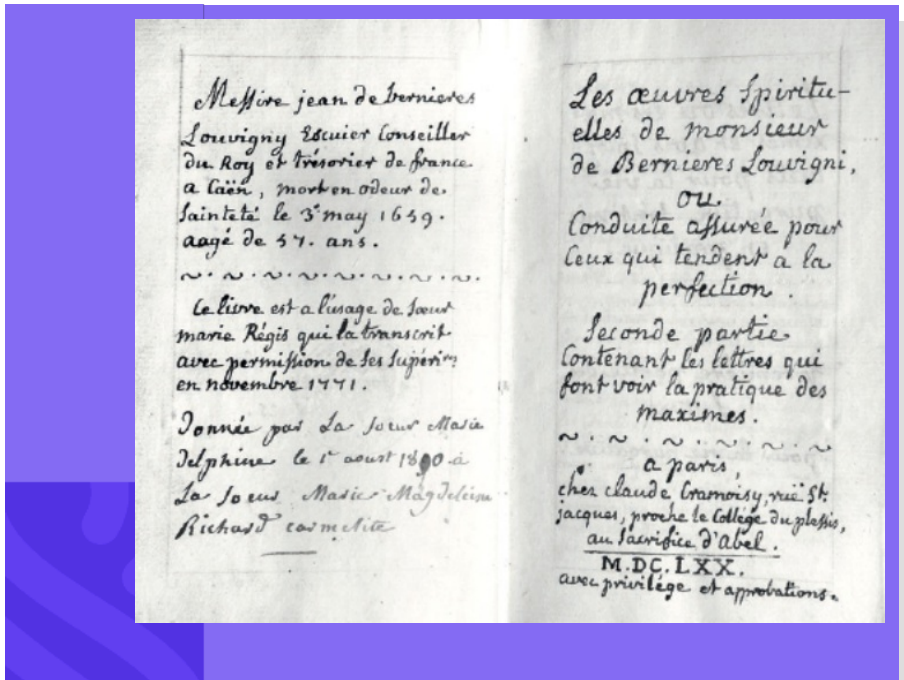 Messire jean de bernieres
Louvigny Escuier Conseiller
du Roy et trésorier de france
a Caën, mort en odeur de
sainteté le 3e may 1659.
aagé de 57. ans.
Ce livre est a l'usage de sœur
marie Régis qui la transcrit
avec permission de ses supérirs
en novembre 1771.
Donnée par La soeur Marie
delphine le 1r aoust à
La soeur Marie Magdeleine
Richard carmelite
Les œuvres spiritu-
elles de monsieur
de Bernieres Louvigni,
ou.
Conduite assurée pour
Ceux qui tendent a la
perfection.
Seconde partie
Contenant les lettres qui
font voir la pratique des
maximes.
a paris,
chez claude Cramoisy, ruë St.
jacques, proche le Collége du plessis,
au sacrifice d'Abel.
M.DC.LXX.
avec privilége et approbations.